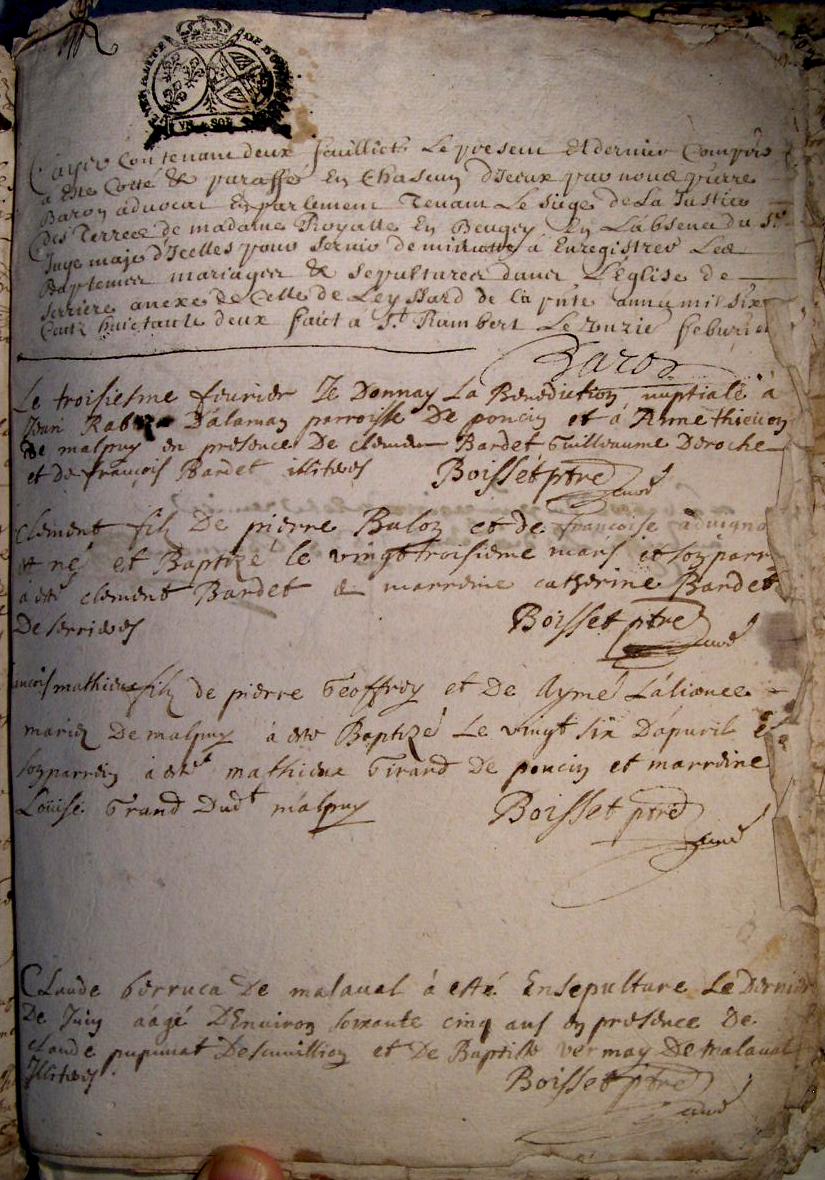 GENERALITE DE BOURGOGNE
VN SOL
Cayer Contenant deux feuillets Le present Et dernier Compris
a Este Cotté & paraffé En Chascun d'Iceux par nous pierre
Baron advocat En parlement Tenant Le Siege de La Justice
des Terres de madame Royalle En Beugey En L'absence du Sr
Juge maje d'Icelles pour Servir de minutte a Enregistrer Les
Baptemes mariages & Sepultures dans L'Eglise de
Serriere anexe de Celle de Leyssard de la pnte annee mil six
Cent huictante deux faict a St Rambert Le Febvrier
Baron
Le troisiesme fevrier Je Donnay La Benediction nuptiale à
Jean D'alaman parroisse De poncin et à Anne thievon
de malpuy en presence De clement Bardet Guilleaume Deroche
et de françois Bardet illiteres Boisset ptre
Clement filz De pierre Buloz et de françoise
et né et Baptizé le vingttroisieme mars et son parr
à esté clement Bardet & marreine catherine Bardet
De serrieres Boisset ptre
mathieu filz de pierre Geoffroy et De Aymé L'alianee
mariez De malpuy à esté Baptizé Le vingt six D'apvril
son parrein à esté mathieu Girard De poncin et marreine
Loüise Grand Dudt malpuy Boisset ptre
Claude Berruca De malaval à esté Ensepulturé Le Dernier
De Juin aagé D'Environ soixante cinq ans en presence De
claude pupunat De et De Baptiste vermay De malaval
Illiteres Boisset ptre